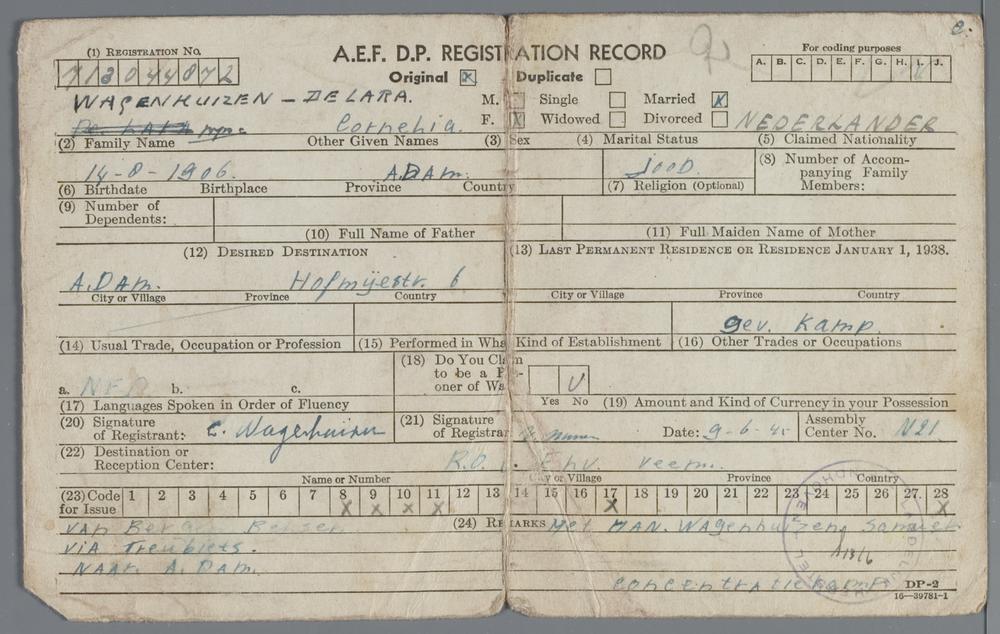 (1) REGISTRATION NO.
A.E.F. D.P. REGISTRATION RECORD
For coding purposes
Original x Duplicate
A. B. C. D. E. F. G. H. I. J.
WAGENHUIZEN - DE LARA.
M. Single Married x
Cornelia.
F. x Widowed Divorced
NEDERLANDER
(2) Family Name Other Given Names (3) Sex (4) Marital Status (5) Claimed Nationality
14-8-1906. A.DAM. JOOD.
(8) Number of Accom-
panying Family
Members:
(6) Birthdate Birthplace Province Country (7) Religion (Optional)
(9) Number of
Dependents:
(10) Full Name of Father (11) Full Maiden Name of Mother
(12) DESIRED DESTINATION (13) LAST PERMANENT RESIDENCE OR RESIDENCE JANUARY 1, 1938.
A.DAM. 6
City or Village Province Country City or Village Province Country
gev. Kamp.
(14) Usual Trade, Occupation or Profession (15) Performed in What Kind of Establishment (16) Other Trades or Occupations
(18) Do You Claim
to be a Pris-
oner of War
a. b. c.
Yes No
(17) Languages Spoken in Order of Fluency (19) Amount and Kind of Currency in your Possession
(20) Signature
of Registrant: C. Wagenhuizen
(21) Signature
of Registrar
Date: 9-6-45
Assembly
Center No. N21
(22) Destination or
Reception Center:
Ehv.
Name or Number City or Village Province Country
(23) Code
for Issue
1 2 3 4 5 6 7 8 9 10 11 12 13 14 15 16 17 18 19 20 21 22 23 24 25 26 27 28
x x x x x x
van Bergen Belsen (24) REMARKS Met MAN. Wagenhuizen, Samuel
VIA Treubiets.
NAAR A.DAM.
13/6
concentratiekamp DP-2
16—39781-1